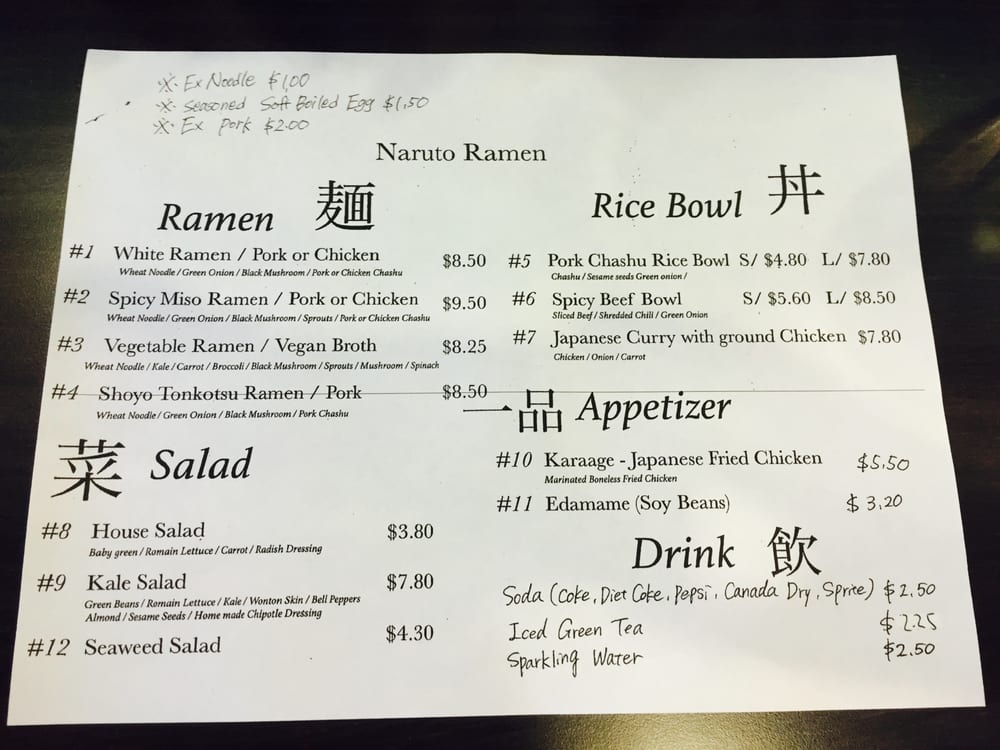 ※ Ex Noodle $1.00
※ Seasoned Soft Boiled Egg $1.50
※ Ex Pork $2.00
Naruto Ramen
Ramen 麺
#1 White Ramen / Pork or Chicken $8.50
Wheat Noodle / Green Onion / Black Mushroom / Pork or Chicken Chashu
#2 Spicy Miso Ramen / Pork or Chicken $9.50
Wheat Noodle / Green Onion / Black Mushroom / Sprouts / Pork or Chicken Chashu
#3 Vegetable Ramen / Vegan Broth $8.25
Wheat Noodle / Kale / Carrot / Broccoli / Black Mushroom / Sprouts / Mushroom / Spinach
#4 Shoyo Tonkotsu Ramen / Pork $8.50
Wheat Noodle / Green Onion / Black Mushroom / Pork Chashu
菜 Salad
#8 House Salad $3.80
Baby green / Romain Lettuce / Carrot / Radish Dressing
#9 Kale Salad $7.80
Green Beans / Romain Lettuce / Kale / Wonton Skin / Bell Peppers
Almond / Sesame Seeds / Home made Chipotle Dressing
#12 Seaweed Salad $4.30
Rice Bowl 丼
#5 Pork Chashu Rice Bowl S/ $4.80 L/ $7.80
Chashu / Sesame seeds Green onion /
#6 Spicy Beef Bowl S/ $5.60 L/ $8.50
Sliced Beef / Shredded Chili / Green Onion
#7 Japanese Curry with ground Chicken $7.80
Chicken / Onion / Carrot
一品 Appetizer
#10 Karaage - Japanese Fried Chicken $5.50
Marinated Boneless Fried Chicken
#11 Edamame (Soy Beans) $3.20
Drink 飲
Soda (Coke, Diet Coke, Pepsi, Canada Dry, Sprite) $2.50
Iced Green Tea $2.25
Sparkling Water $2.50